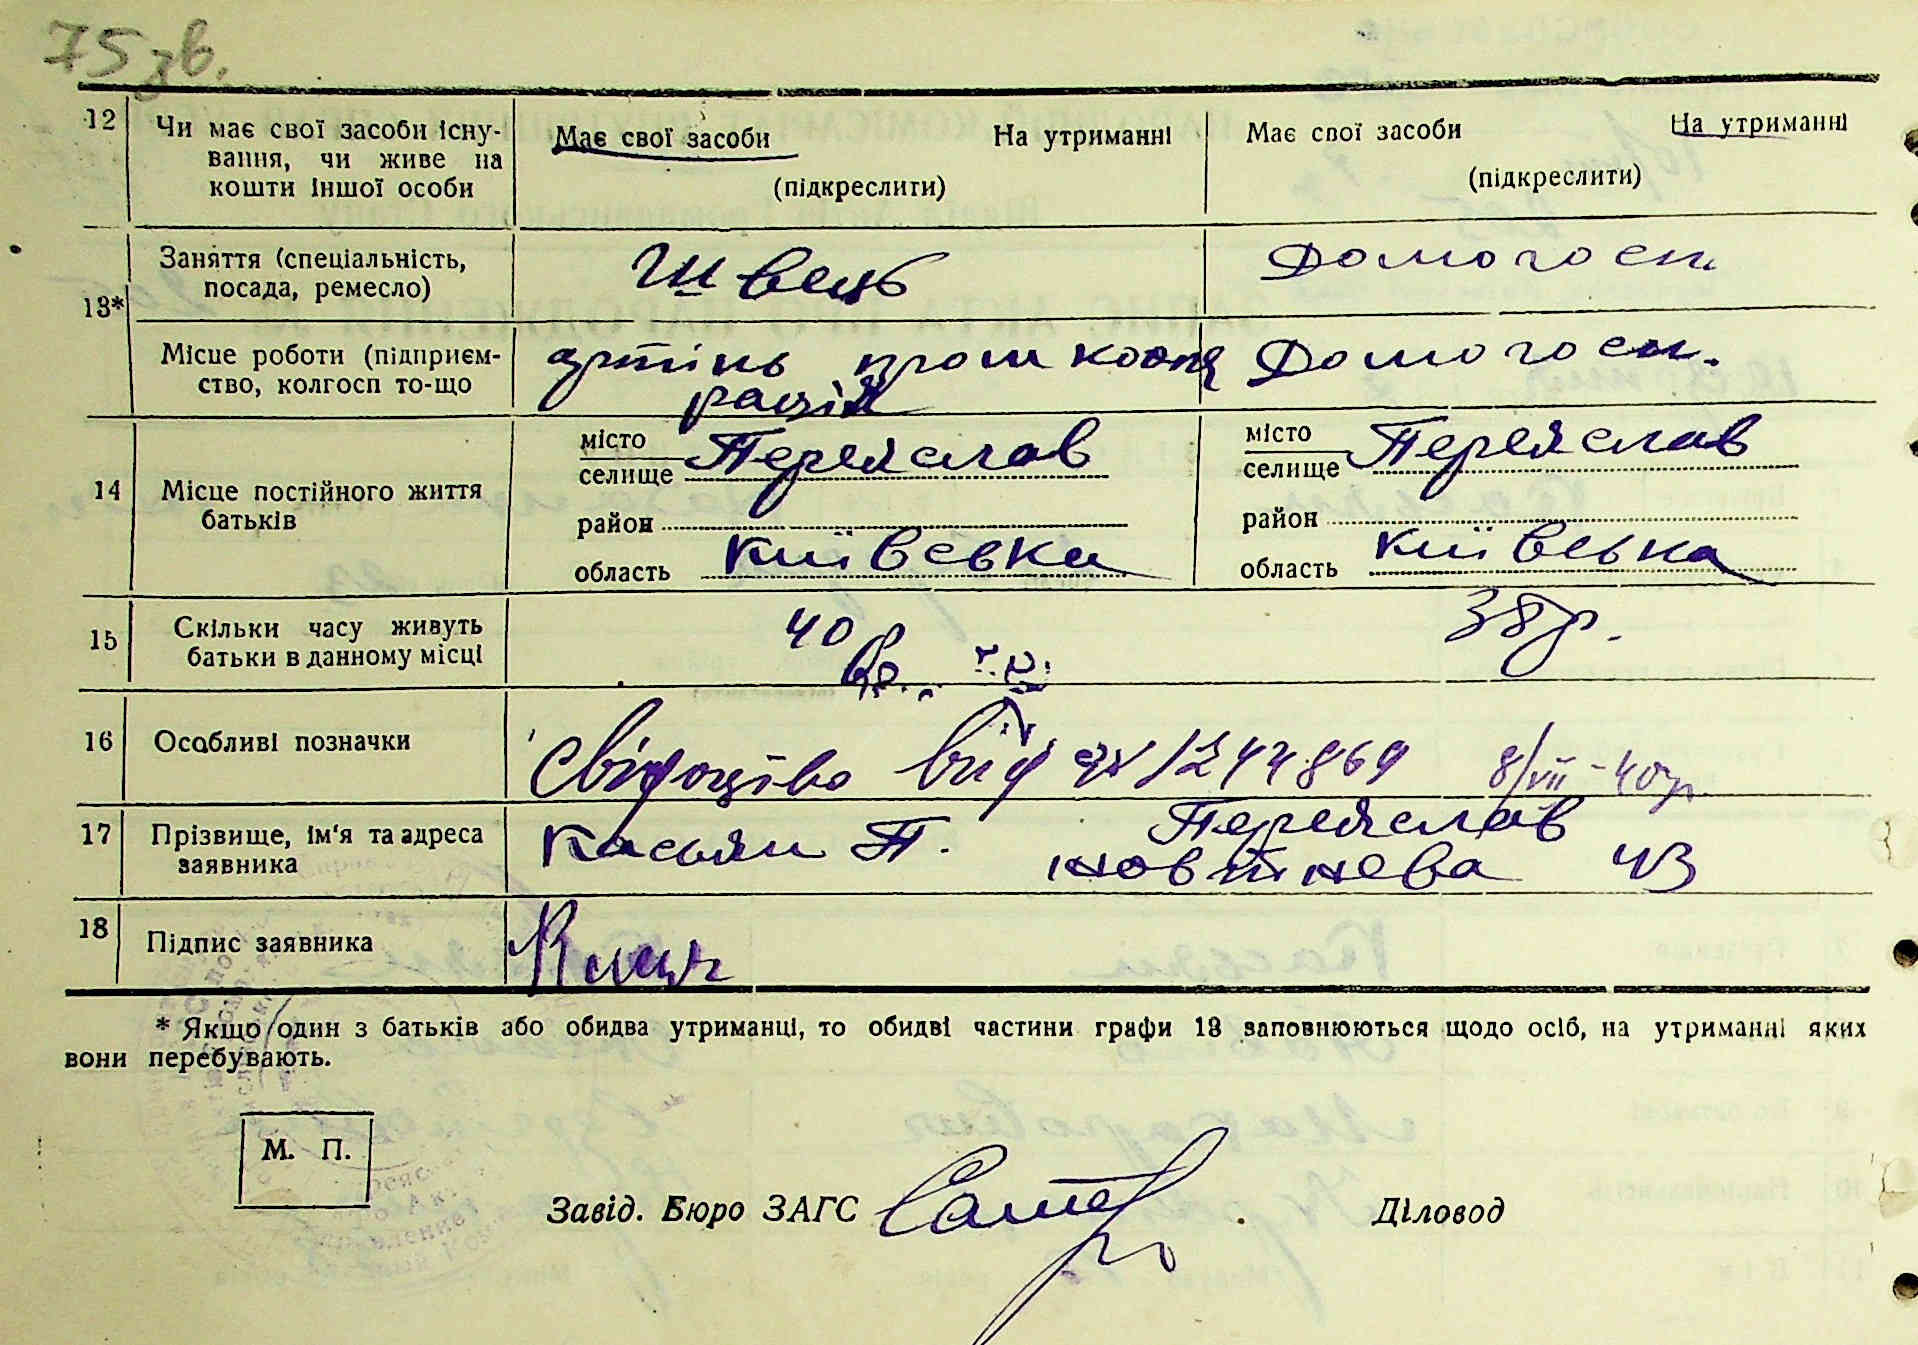 75 зв.
12 Чи має свої засоби існу- Має свої засоби На утриманні Має свої засоби На утриманні
вання, чи живе на
кошти іншої особи (підкреслити) (підкреслити)
13* Заняття (спеціальність, Швець Домогосп.
посада, ремесло)
Місце роботи (підприєм- артіль промкоопе Домогосп.
ство, колгосп то-що рація
14 Місце постійного життя місто Переяслав місто Переяслав
батьків селище селище
район район
область Київська область Київська
15 Скільки часу живуть 40 р. 38 р.
батьки в данному місці
16 Особливі позначки Свідоцтво 1244869 8/VII-40р.
17 Прізвище, ім'я та адреса Касьян П. Переяслав
заявника Жовтнева 43
18 Підпис заявника
* Якщо один з батьків або обидва утриманці, то обидві частини графи 13 заповнюються щодо осіб, на утриманні яких
вони перебувають.
М. П.
Завід. Бюро ЗАГС Діловод